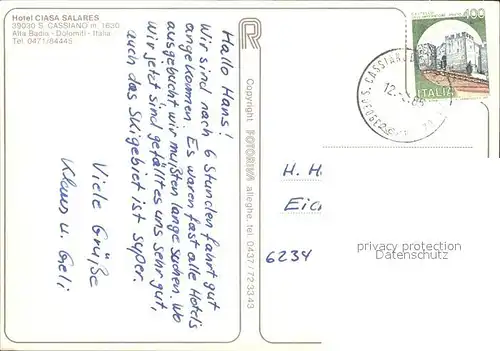 Hotel CIASA SALARES
39030 S. CASSIANO m. 1630
Alta Badia - Dolomiti - Italia
Tel. 0471/84445
Hallo Hans!
Wir sind nach 6 Stunden fahrt gut
angekommen. Es waren fast alle Hotels
ausgebucht wir mußten lange suchen. Wo
wir jetzt sind gefällt es uns sehr gut,
auch das Skigebiet ist super.
Viele Grüße
Klaus u. Geli
Copyright FOTORIVA alleghe. tel. 0437/723343
S. CASSIANO
12.
85
100
ITALIA
H. H
Eic
6234
privacy protection
Datenschutz